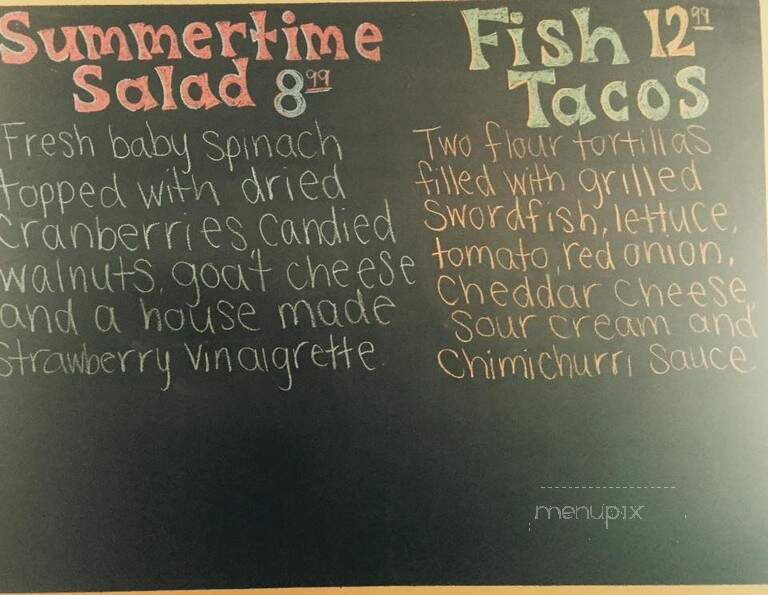 Summertime
Salad 8.99
Fresh baby spinach
topped with dried
Cranberries, Candied
walnuts, goat cheese
and a house made
Strawberry Vinaigrette.
Fish 12.99
Tacos
Two flour tortillas
filled with grilled
Swordfish, lettuce,
tomato, red onion,
Cheddar Cheese,
Sour cream and
Chimichurri Sauce.
menupix